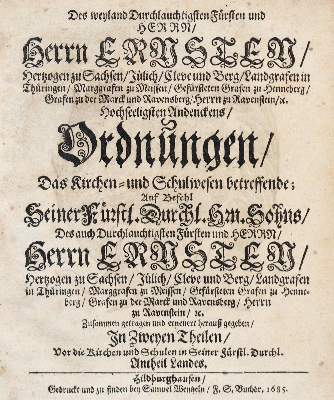 Des weyland Durchlauchtigsten Fürsten und
HERRN/
Herrn ERNSTEN/
Hertzogen zu Sachsen/ Jülich/ Cleve und Berg/ Landgrafen in
Thüringen/ Marggrafen zu Meissen/ Gefürsteten Grafen zu Henneberg/
Grafen zu der Marck und Ravensberg/ Herrn zu Ravenstein/ ꝛc.
Hochseeligsten Andenckens/
Ordnungen/
Das Kirchen- und Schulwesen betreffende;
Auf Befehl
Seiner Fürstl. Durchl. Hrn. Sohns/
Des auch Durchlauchtigsten Fürsten und HERRN/
Herrn ERNSTEN/
Hertzogen zu Sachsen/ Jülich/ Cleve und Berg/ Landgrafen
in Thüringen/ Marggrafen zu Meissen/ Gefürsteten Grafen zu Henne-
berg/ Grafen zu der Marck und Ravensberg/ Herrn
zu Ravenstein/ ꝛc.
Zusammen getragen und erneuert herauß gegeben/
In Zweyen Theilen/
Vor die Kirchen und Schulen in Seiner Fürstl. Durchl.
Antheil Landes.
Hildburghausen/
Gedruckt und zu finden bey Samuel Wentzeln/ F. S. Buchdr. 1685.